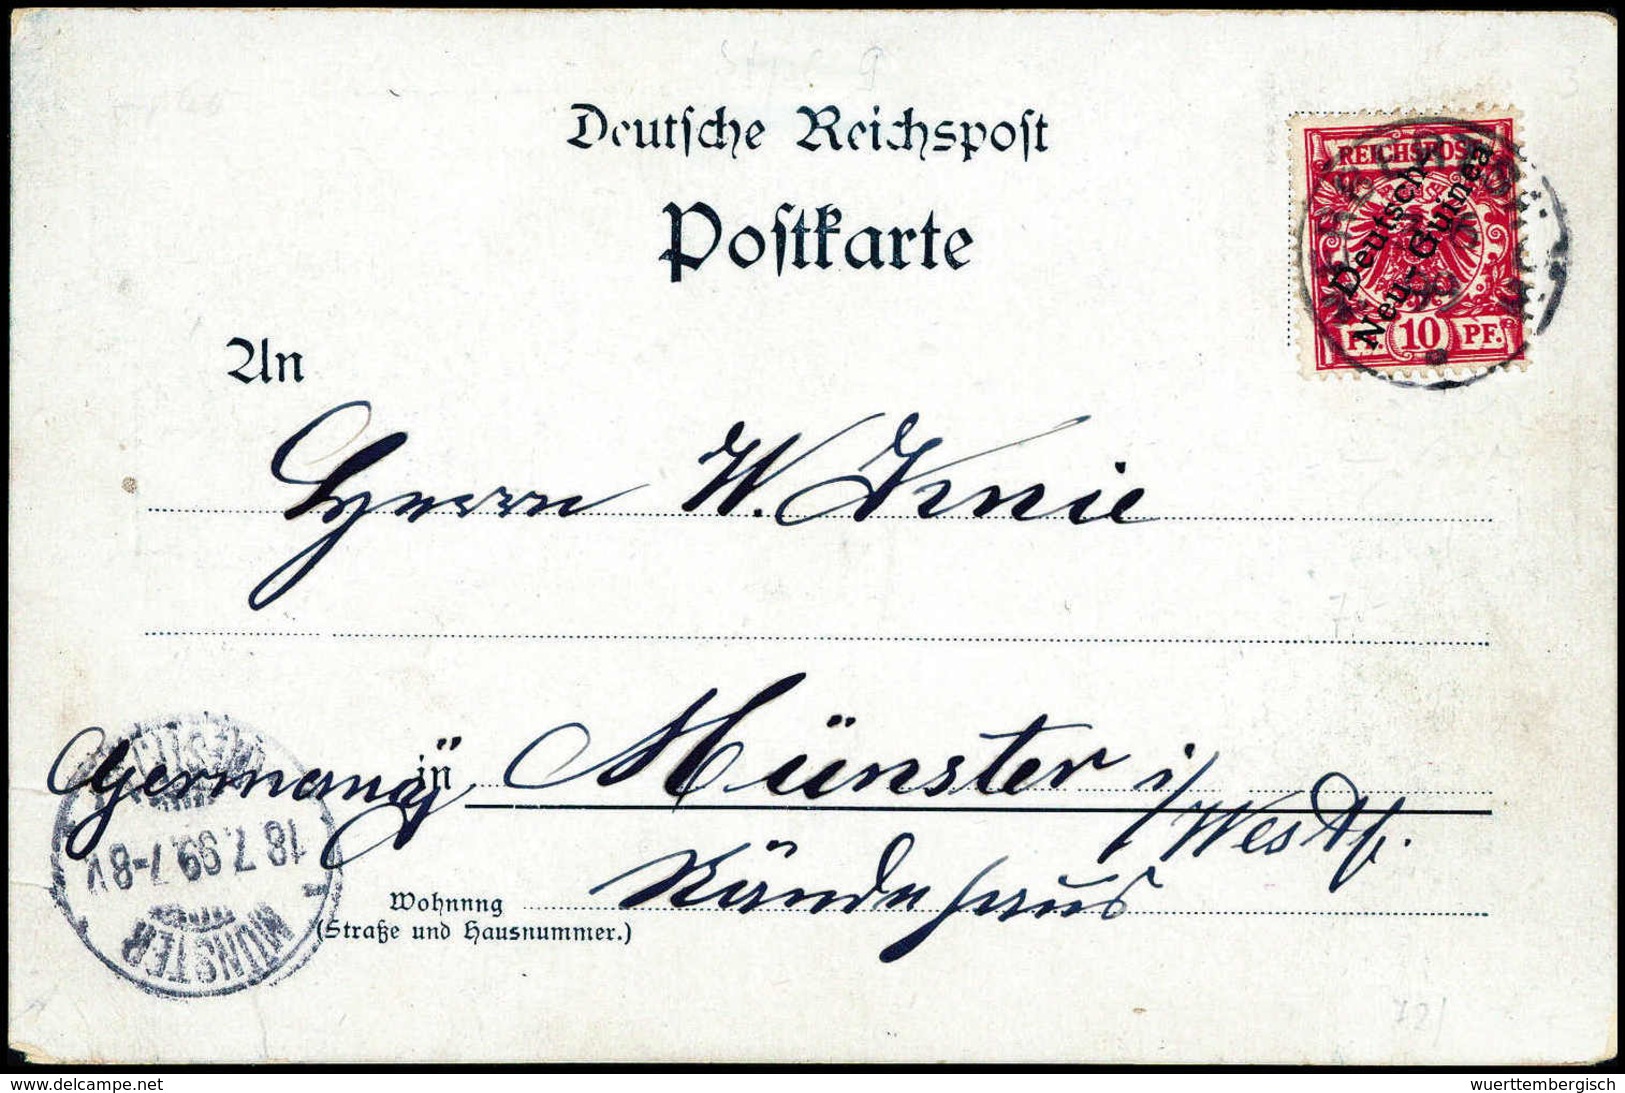 Deutsche Reichspost
Postkarte
REICHSPOST
Deutsch-
Neu-Guinea
PF. 10 PF.
An
Herrn W. Knie
Germany in Münster i/Westf.
18.7.99.7-8V
MÜNSTER
Wohnung
(Straße und Hausnummer.)
www.delcampe.net
wuerttembergisch